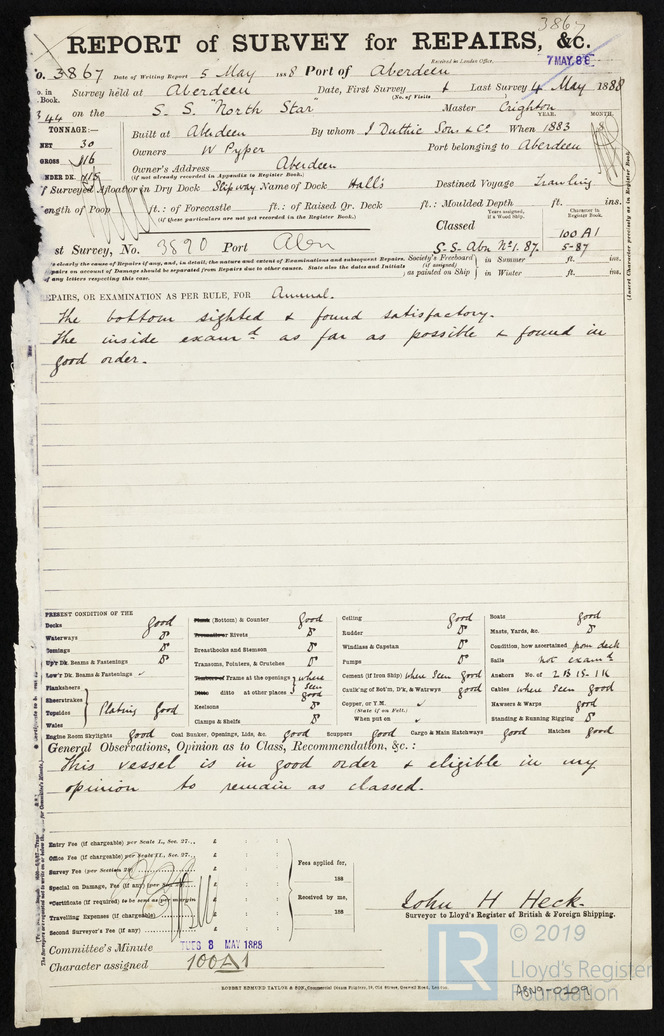 3867
REPORT of SURVEY for REPAIRS, &c.
Received in London Office,
7 MAY. 88
No. 3867 Date of Writing Report 5 May 1888 Port of Aberdeen
No. in Book. Survey held at Aberdeen Date, First Survey & Last Survey 4 May 1888
(No. of Visits )
344 on the S. S. "North Star" Master Crighton
TONNAGE:— YEAR. MONTH.
Built at Aberdeen By whom J Duthie Sons & Co. When 1883 8
NET 30
Owners W Pyper Port belonging to Aberdeen
GROSS 116
Owner's Address Aberdeen
(if not already recorded in Appendix to Register Book.)
UNDER DK. 
If Surveyed Afloat or in Dry Dock Slipway Name of Dock Hall's Destined Voyage Trawling
Length of Poop ft.: of Forecastle ft.: of Raised Qr. Deck ft.: Moulded Depth ft. ins.
(if these particulars are not yet recorded in the Register Book.)
Years assigned, if a Wood Ship.
Character in Register Book.
Classed 100 A1
Last Survey, No. 3890 Port Abn S.S. Abn No 1. 87. 5-87
Society's Freeboard (if assigned) as painted on Ship in Summer ft. ins.
in Winter ft. ins.
(Insert Character precisely as in Register Book)
REPAIRS, OR EXAMINATION AS PER RULE, FOR Annual.
The bottom sighted & found satisfactory.
The inside examd as far as possible & found in
good order.
PRESENT CONDITION OF THE
Decks good
Waterways Do
Comings Do
Up'r Dk. Beams & Fastenings Do
Low'r Dk. Beams & Fastenings ✓
Planksheers
Sheerstrakes
Topsides
Wales
Plating good
Engine Room Skylights good
Plank (Bottom) & Counter good
Treenails or Rivets Do
Breasthooks and Stemson Do
Transoms, Pointers, & Crutches Do
Timbers of Frame at the openings
Ditto ditto at other places
where seen good
Keelsons Do
Clamps & Shelfs Do
Coal Bunker, Openings, Lids, &c. good
Ceiling good
Rudder Do
Windlass & Capstan Do
Pumps Do
Cement (if Iron Ship) where seen good
Caulk'ng of Bot'm, D'k, & Watrwys good
Copper, or Y.M. ✓
(State if on Felt.)
When put on ✓
Scuppers good
Cargo & Main Hatchways good
Boats good
Masts, Yards, &c. Do
Condition, how ascertained from deck
Sails not examd
Anchors No. of 2B 1S. 1K
Cables where seen good
Hawsers & Warps good
Standing & Running Rigging Do
Hatches good
General Observations, Opinion as to Class, Recommendation, &c.:
This vessel is in good order & eligible in my
opinion to remain as classed.
Entry Fee (if chargeable) per Scale I., Sec. 27... £ : :
Office Fee (if chargeable) per Scale II., Sec. 27... £ : :
Survey Fee (per Section 27) £ : :
Special on Damage, Fee (if any) (per Sec. £ : :
*Certificate (if required) to be sent as per margin £ : :
Travelling Expenses (if chargeable) £ : :
Second Surveyor's Fee (if any) £ : :
Fees applied for,
188
Received by me,
188
John H Heck.
Surveyor to Lloyd's Register of British & Foreign Shipping.
Committee's Minute TUES 8 MAY 1888
Character assigned 100A1
ROBERT EDMUND TAYLOR & SON, Commercial Steam Printers, 19, Old Street, Goswell Road, London.
LR © 2019
Lloyd's Register
Foundation
ABN9-0209